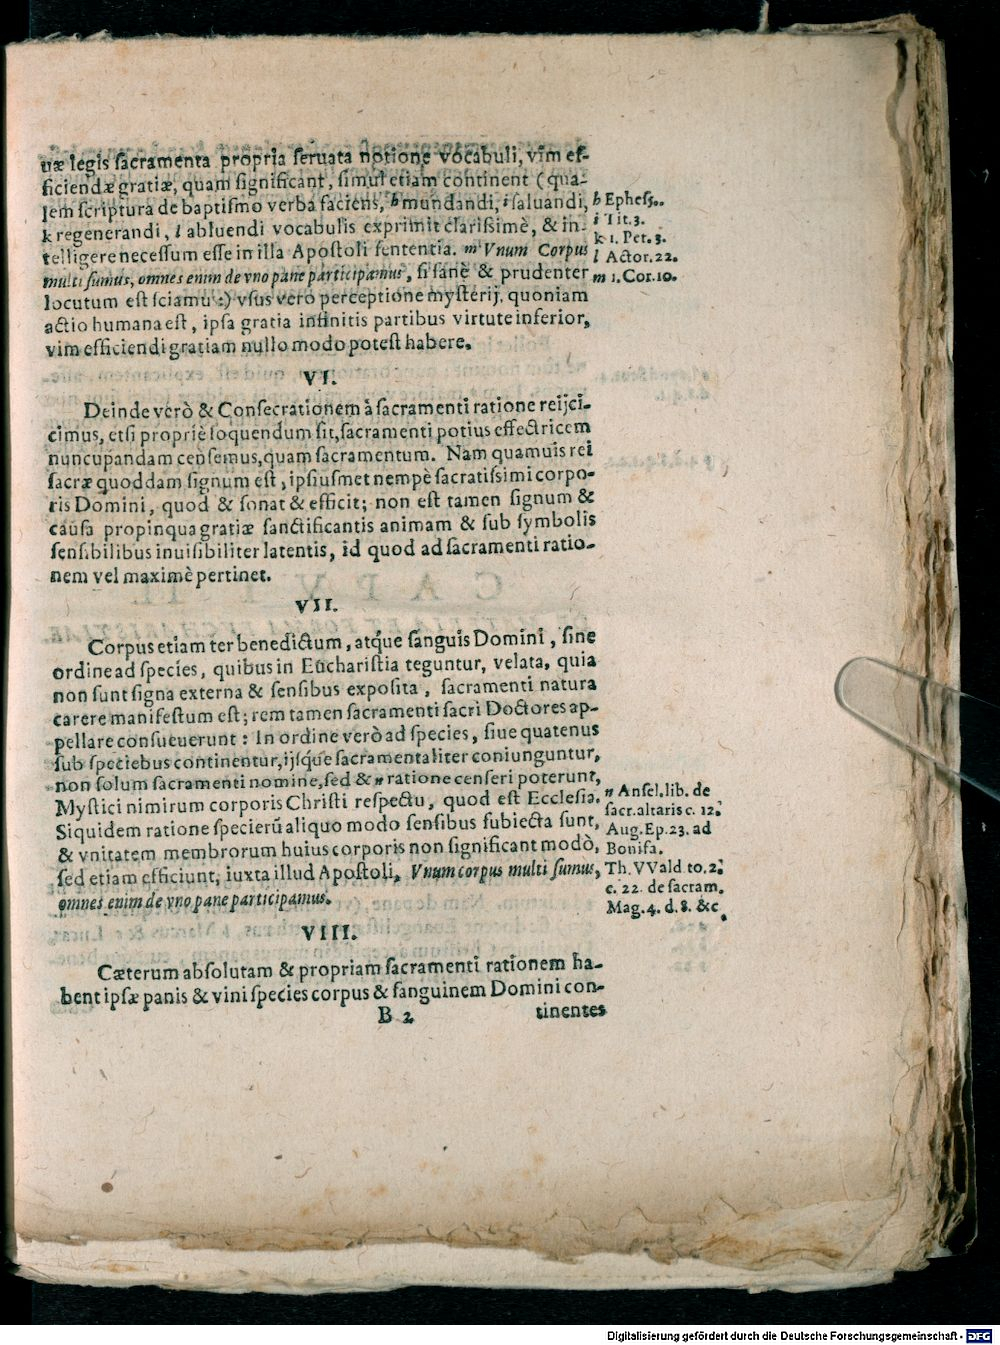 uæ legis sacramenta propria seruata notione vocabuli, vim ef-
ficiendæ gratiæ, quam significant, simul etiam continent (qua-
lem scriptura de baptismo verba faciens, h mundandi, i saluandi,
k regenerandi, l abluendi vocabulis exprimit clarissimè, & in-
telligere necessum esse in illa Apostoli sententia. m Vnum Corpus
multi sumus, omnes enim de vno pane participamus, si sanè & prudenter
locutum est sciamus:) vsus vero perceptione mysterij, quoniam
actio humana est, ipsa gratia infinitis partibus virtute inferior,
vim efficiendi gratiam nullo modo potest habere.
h Ephes5.
i Tit.3.
k 1. Pet. 3.
l Actor. 22.
m 1. Cor. 10.
VI.
Deinde verò & Consecrationem à sacramenti ratione reijci-
cimus, etsi propriè loquendum sit, sacramenti potius effectricem
nuncupandam censemus, quam sacramentum. Nam quamuis rei
sacræ quoddam signum est, ipsiusmet nempè sacratissimi corpo-
ris Domini, quod & sonat & efficit; non est tamen signum &
causa propinqua gratiæ sanctificantis animam & sub symbolis
sensibilibus inuisibiliter latentis, id quod ad sacramenti ratio-
nem vel maximè pertinet.
VII.
Corpus etiam ter benedictum, atque sanguis Domini, sine
ordine ad species, quibus in Eucharistia teguntur, velata, quia
non sunt signa externa & sensibus exposita, sacramenti natura
carere manifestum est; rem tamen sacramenti sacri Doctores ap-
pellare consueuerunt: In ordine verò ad species, siue quatenus
sub speciebus continentur, ijsque sacramentaliter coniunguntur,
non solum sacramenti nomine, sed & n ratione censeri poterunt,
Mystici nimirum corporis Christi respectu, quod est Ecclesia.
Siquidem ratione specierū aliquo modo sensibus subiecta sunt,
& vnitatem membrorum huius corporis non significant modò,
sed etiam efficiunt, iuxta illud Apostoli, Vnum corpus multi sumus,
omnes enim de vno pane participamus.
n Ansel. lib. de
sacr. altaris c. 12.
Aug. Ep. 23. ad
Bonifa.
Th. VVald to. 2.
c. 22. de sacram.
Mag. 4. d. 8. &c.
VIII.
Cæterum absolutam & propriam sacramenti rationem ha-
bent ipsæ panis & vini species corpus & sanguinem Domini con-
B 2 tinentes
Digitalisierung gefördert durch die Deutsche Forschungsgemeinschaft - DFG